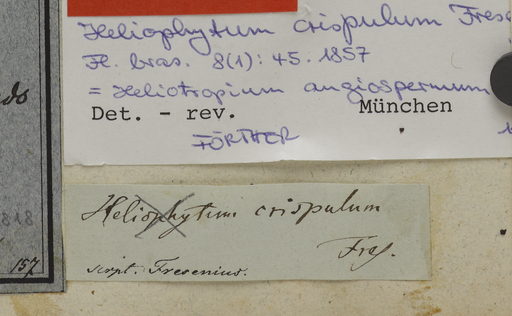 Heliophytum crispulum Frese
Fl. bras. 8(1): 45. 1857
= Heliotropium angiospermum
Det. - rev. München
FÖRTHER
do
818
157
Heliophytum crispulum
Fres.
script. Fresenius.